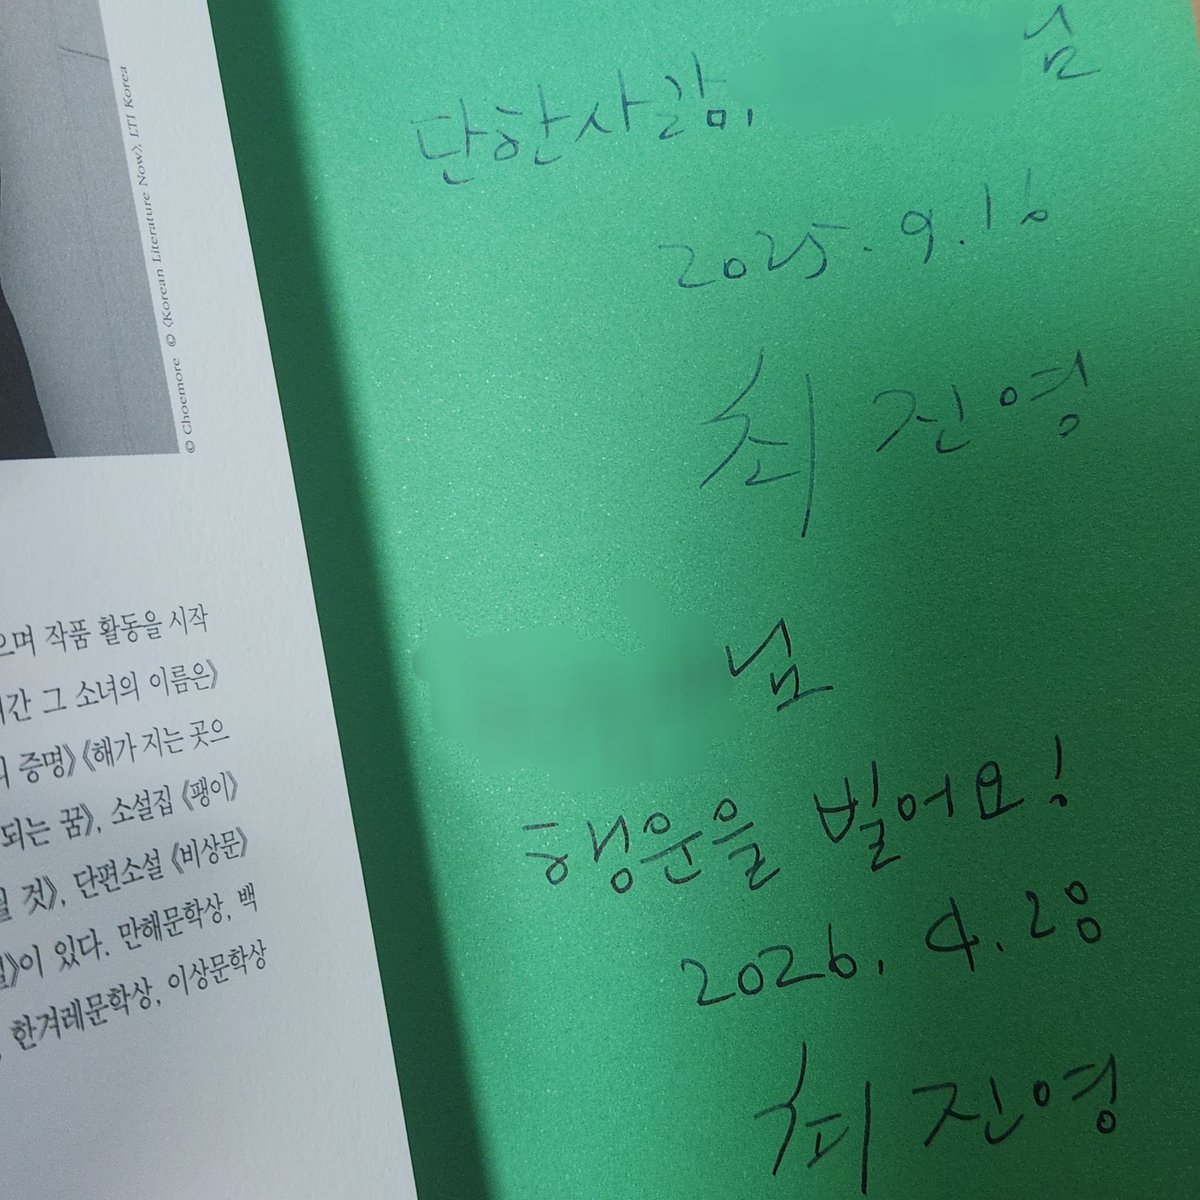 © Choemore © 《Korean Literature Now》, LTI Korea
으며 작품 활동을 시작
간 그 소녀의 이름은》
증명》 《해가 지는 곳으
되는 꿈》, 소설집 《팽이》
것》, 단편소설 《비상문》
》이 있다. 만해문학상, 백
, 한겨레문학상, 이상문학상
단 한 사람, 님
2025. 9. 16
최진영
님
행운을 빌어요!
2026. 4. 28
최진영